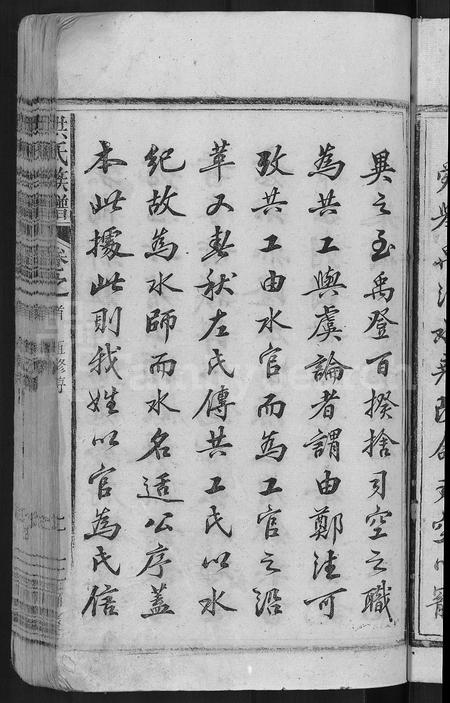 異之至禹登百揆捨司空之職
為共工與虞論者謂由鄭注可
攷共工由水官而為工官之沿
革又春秋左氏傳共工氏以水
紀故為水師而水名适公序蓋
本此據此則我姓以官為氏信
洪氏族譜
卷之首
重修序